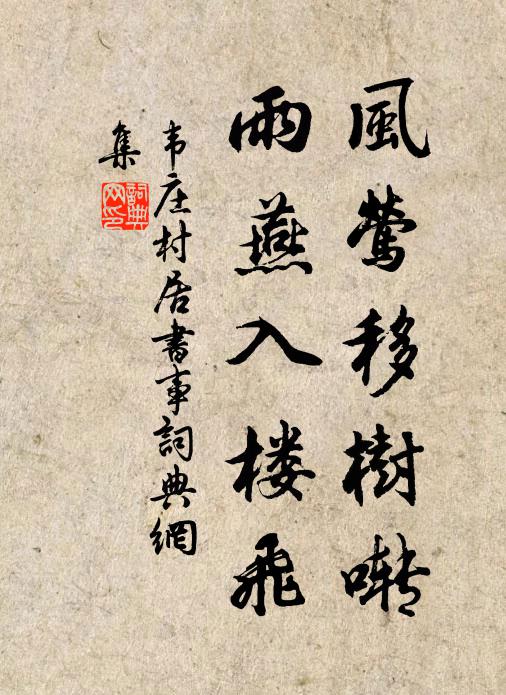 風莺移樹囀
雨燕入楼飛
韦庄村居書事詞典網
集
詞典
网印